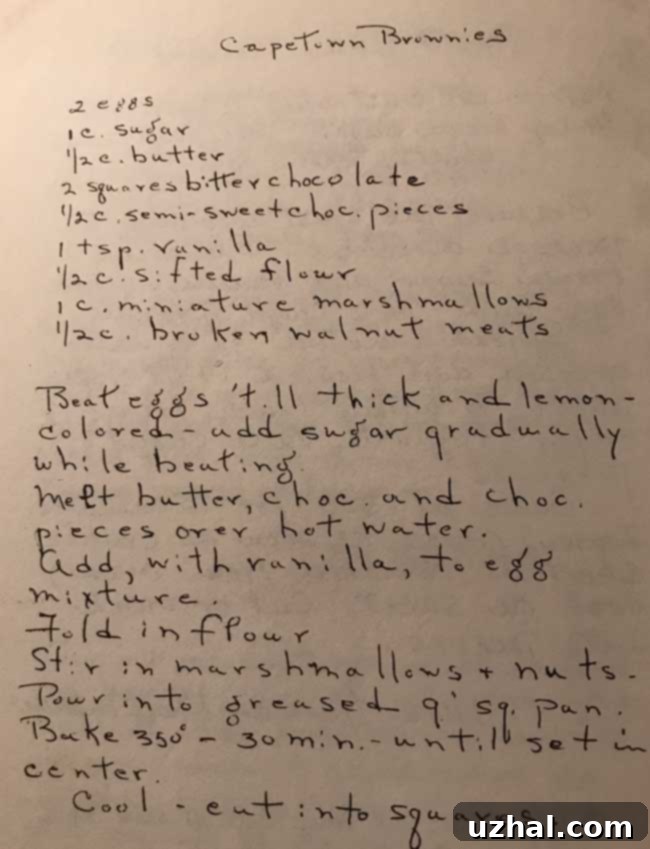 Capetown Brownies
2 eggs
1 c. sugar
1/2 c. butter
2 squares bitter chocolate
1/2 c. semi-sweet choc. pieces
1 tsp. vanilla
1/2 c. sifted flour
1 c. miniature marshmallows
1/2 c. broken walnut meats
Beat eggs 'till thick and lemon-
colored - add sugar gradually
while beating.
Melt butter, choc. and choc.
pieces over hot water.
Add, with vanilla, to egg
mixture.
Fold in flour
Stir in marshmallows + nuts.
Pour into greased 9" sq. pan.
Bake 350° - 30 min. - until set in
center.
Cool - cut into squares
uzhal.com